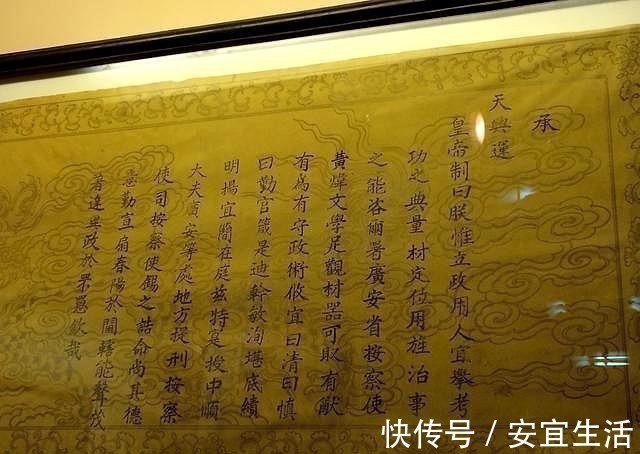 承
天興運
皇帝制曰朕惟立政用人宜擧考
功之典量材定位用旌治事
之能咨爾署廣安省按察使
黃煒文學足觀材器可取有猷
有為有守政術攸宜曰清曰慎
曰勤官箴是迪幹敏洵堪底績
明揚宜簡在庭茲特寔授中順
大夫廣安等處地方提刑按察
使司按察使錫之誥命尚其德
意勤宣扇春陽於開轄能聲茂
著達與政於罘罳欽哉
快传号 / 安宜生活